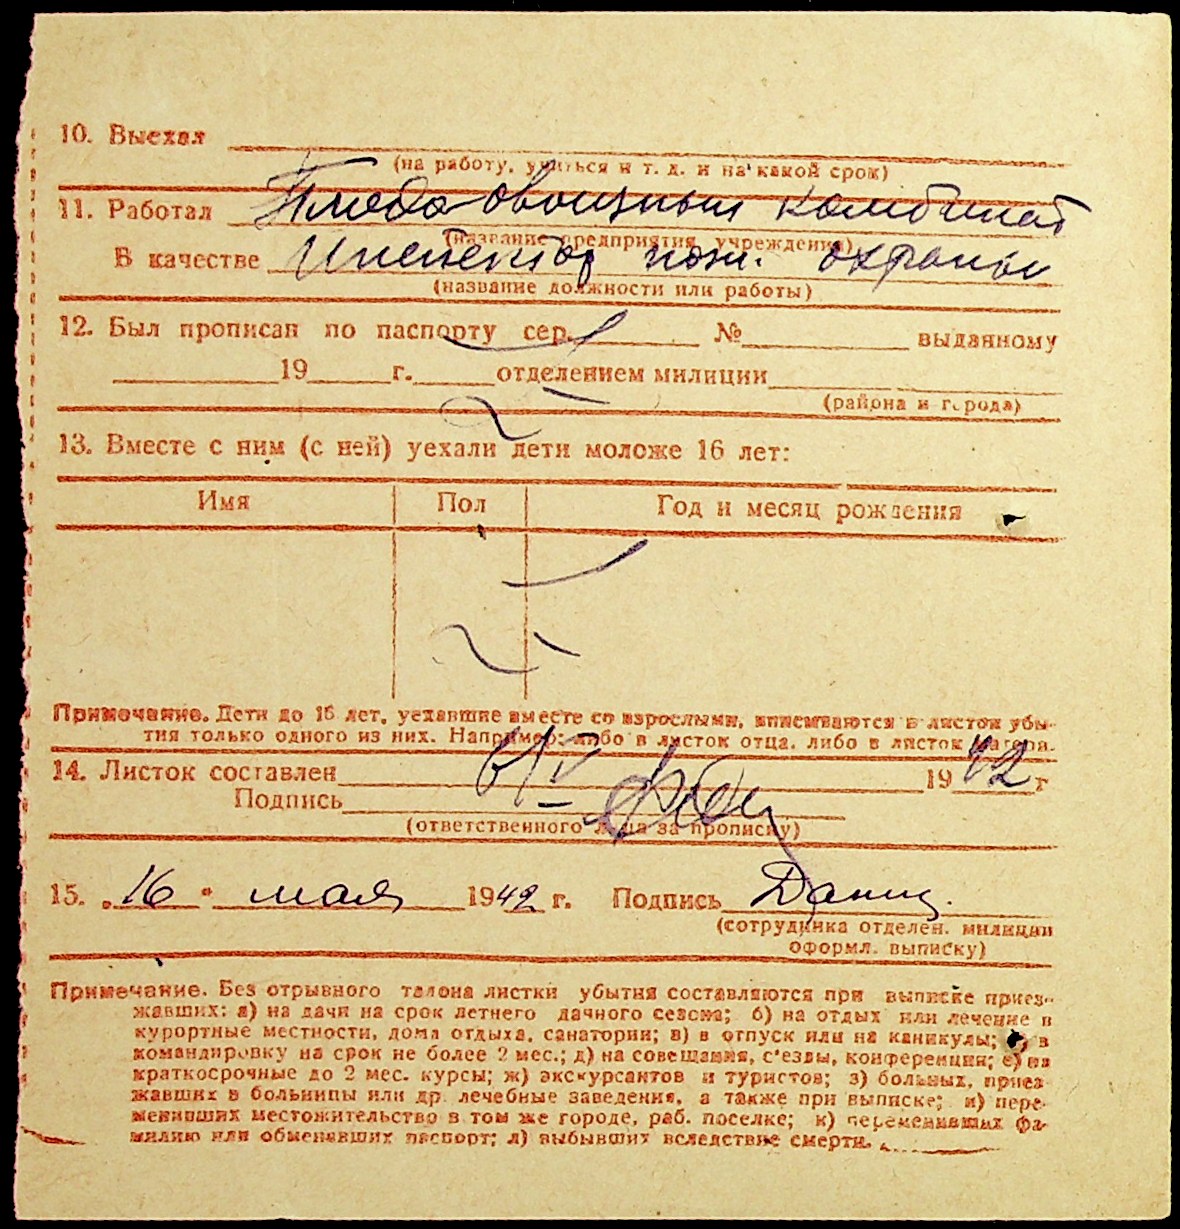 10. Выехал
(на работу, учиться и т. д. и на какой срок)
11. Работал Плодо овощный комбинат
(название предприятия, учреждения)
В качестве Инспектор пож. охраны
(название должности или работы)
12. Был прописан по паспорту сер. № выданному
19 г. отделением милиции
(района и города)
13. Вместе с ним (с ней) уехали дети моложе 16 лет:
Имя Пол Год и месяц рождения
Примечание. Дети до 16 лет, уехавшие вместе со взрослыми, вписываются в листок убы-
тия только одного из них. Например: либо в листок отца, либо в листок матери.
14. Листок составлен 6/V 1942 г
Подпись
(ответственного лица за прописку)
15. „16" мая 1942 г. Подпись
(сотрудника отделен. милиции
оформл. выписку)
Примечание. Без отрывного талона листки убытия составляются при выписке приез-
жавших: а) на дачи на срок летнего дачного сезона; б) на отдых или лечение в
курортные местности, дома отдыха, санатории; в) в отпуск или на каникулы; в
командировку на срок не более 2 мес.; д) на совещания, с'езды, конференции; е) на
краткосрочные до 2 мес. курсы; ж) экскурсантов и туристов; з) больных, приез-
жавших в больницы или др. лечебные заведения, а также при выписке; и) пере-
менивших местожительство в том же городе, раб. поселке; к) переменивших фа-
милию или обменявших паспорт; л) выбывших вследствие смерти.